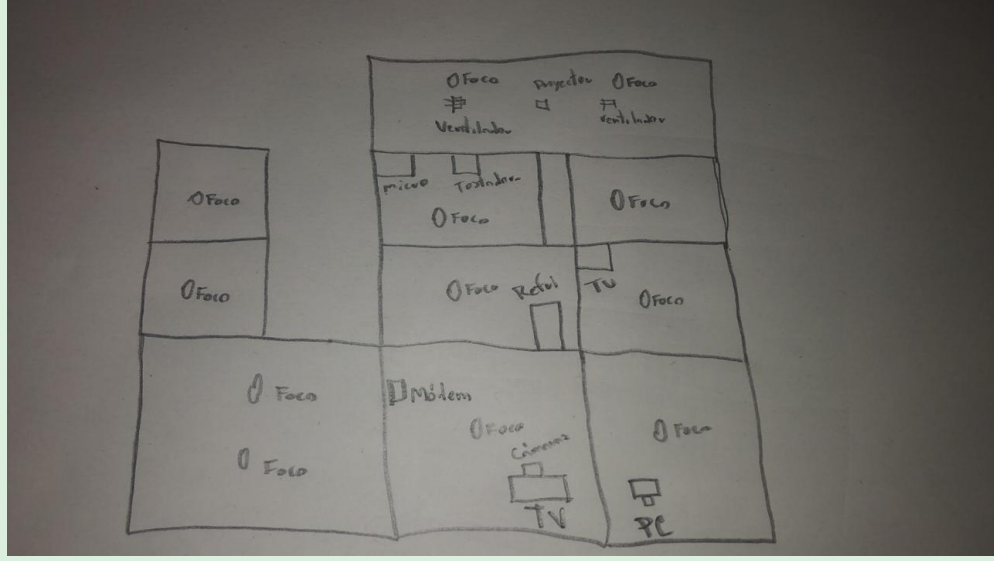 Foco
Proyector
Foco
Ventilador
Ventilador
micro
Tostador
Foco
Foco
Foco
Foco
Foco
Refri
TV
Foco
Foco
Módem
Foco
Foco
Foco
Cámaras
TV
PC